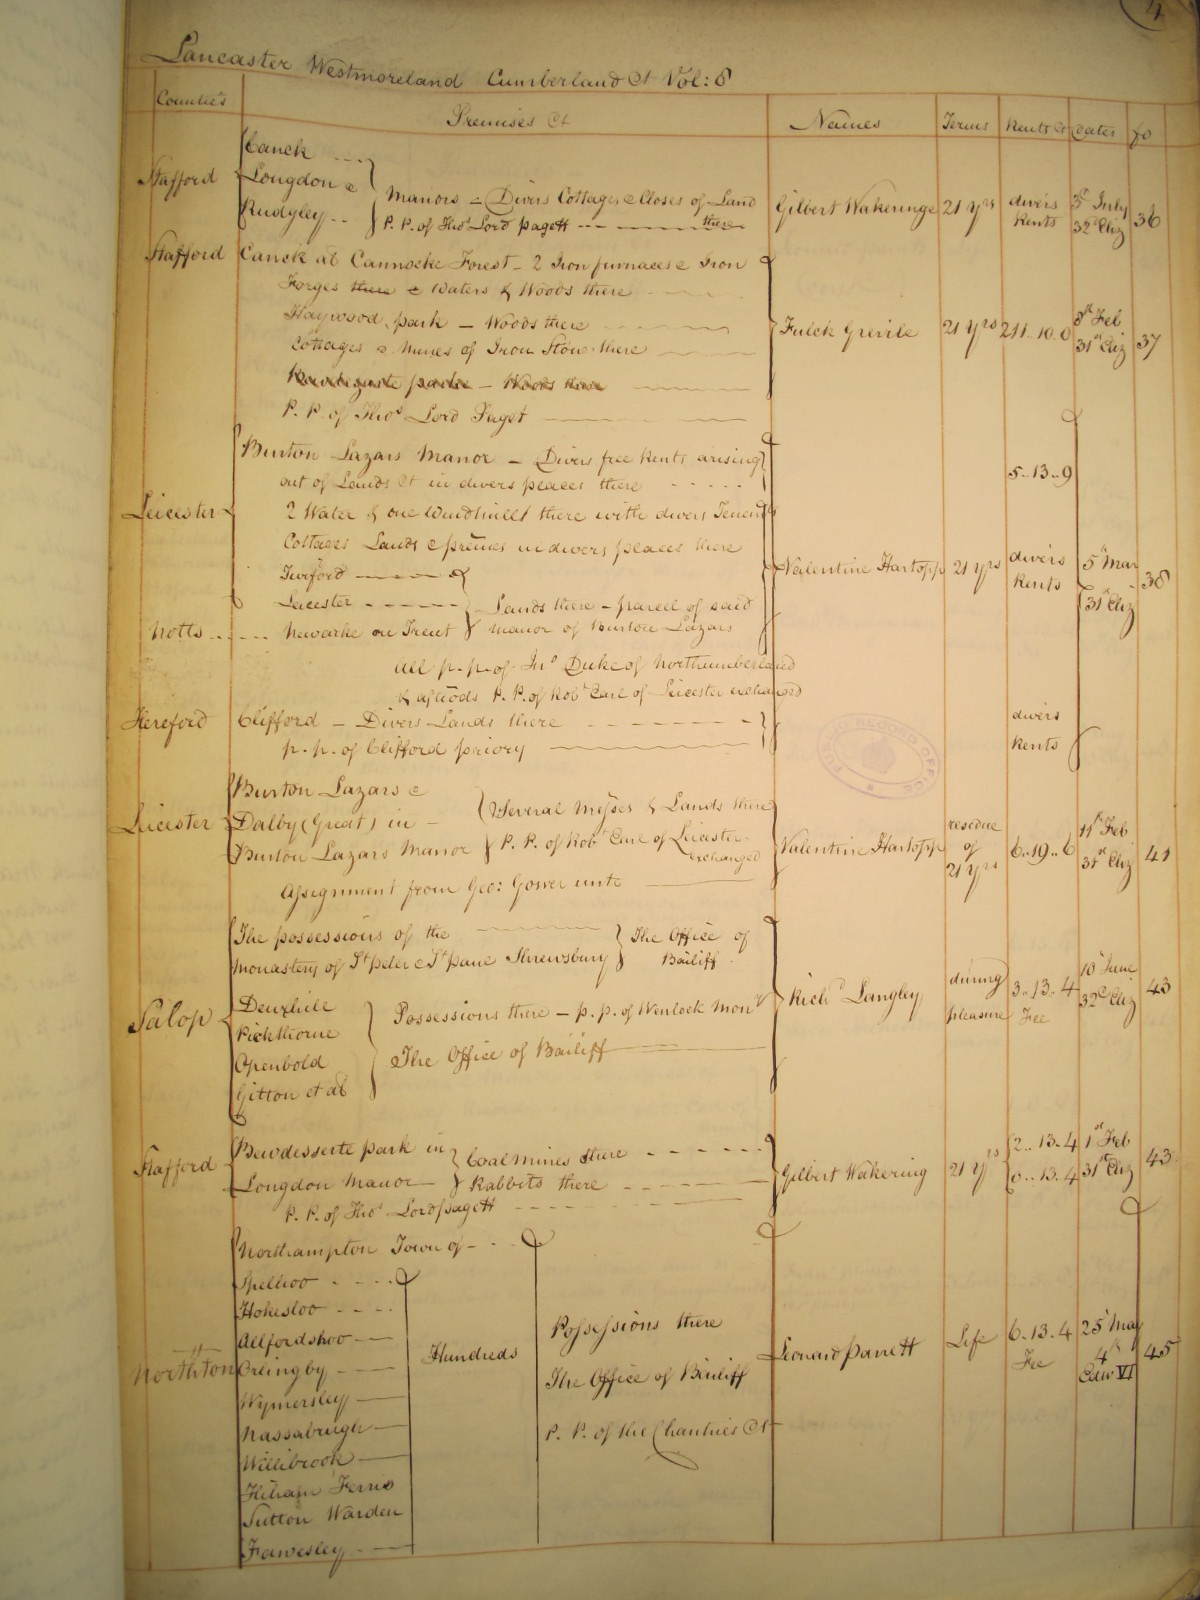 4
Lancaster Westmoreland Cumberland &c Vol: 8
Counties Premises &c Names Terms Rents &c Dates fo
Stafford
Canck ....
Longdon &
Rudgley ..
Manors – Divers Cottages & Closes of Land there
P. P. of Thos Lord Pagett
Gilbert Wakeringe 21 yrs divers Rents 3d July 32d Eliz 36
Stafford Canck at Cannocke Forest – 2 Iron furnaces & Iron
Forges there & Waters & Woods there
Haywood park – Woods there
Cottages & Mines of Iron Stone there
park – Woods there
P. P. of Thos Lord Paget
Fulck Grevile 21 yrs 211.. 10.. 0 8th Feb 31st Eliz 37
Leicester
Burton Lazars Manor – Divers free Rents arising
out of Lands &c in divers places there
5.. 13.. 9
2 Water & one Windmill there with divers Tenemts
Cottages Lands & premes in divers places there
Twiford
Leicester
Notts ...... Newarke on Trent
Lands there – parcell of said
Manor of Burton Lazars
Valentine Hartopp 21 yrs divers Rents 5th Mar 31st Eliz 38
all p. p. of Jno Duke of Northumberland
& aftwds P. P. of Robt Earl of Leicester exchanged
Hereford Clifford – Divers Lands there
p. p. of Clifford priory
divers Rents
Leicester
Burton Lazars &
Dalby (Great) in –
Burton Lazars Manor
Several Messes & Lands there
P. P. of Robt Earl of Leicester exchanged
Assignment from Geo: Gower unto
Valentine Hartopp residue of 21 yrs 6.. 19.. 6 11th Feb 31st Eliz 41
Salop
The possessions of the
Monastery of St peter & St paul Shrewsbury
The Office of
Bailiff
Deuxhill
Pickthorne
Openbold
Gitton et al
Possessions there – p. p. of Wenlock Mony
The Office of Bailiff
Richd Langley during pleasure 3.. 13.. 4 Fee 10th June 32d Eliz 43
Stafford
Bewdesserte park in
Longdon Manor
Coal Mines there
Rabbits there
P. P. of Thos Lord pagett
Gilbert Wakering 21 yrs 2.. 13.. 4 0.. 13.. 4 1st Feb 31st Eliz 43
Northton
Northampton Town of –
Spelhoo
Hokesloo
Allfordshoo
Orlingby
Wymersley
Nassabrugh
Willibrook
Ferris
Sutton Warden
Fawesley
Hundreds
Possessions there
The Office of Bailiff
P. P. of the Chantries &c
Leonard Parrett Life 6.. 13.. 4 Fee 25th May 4th Edw VI 45
PUBLIC RECORD OFFICE